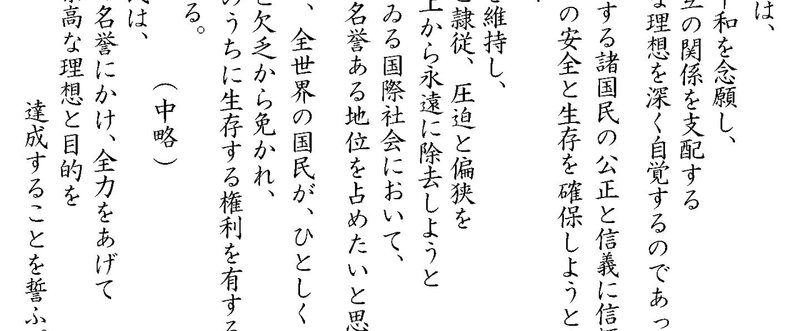 は、
和を念願し、
の関係を支配する
な理想を深く自覚するのであっ
する諸国民の公正と信義に信
の安全と生存を確保しようと
維持し、
隷従、圧迫と偏狭を
上から永遠に除去しようと
ゐる国際社会において、
名誉ある地位を占めたいと思
、全世界の国民が、ひとしく
欠乏から免かれ、
のうちに生存する権利を有する
る。
(中略)
は、
名誉にかけ、全力をあげて
高な理想と目的を
達成することを誓ふ。